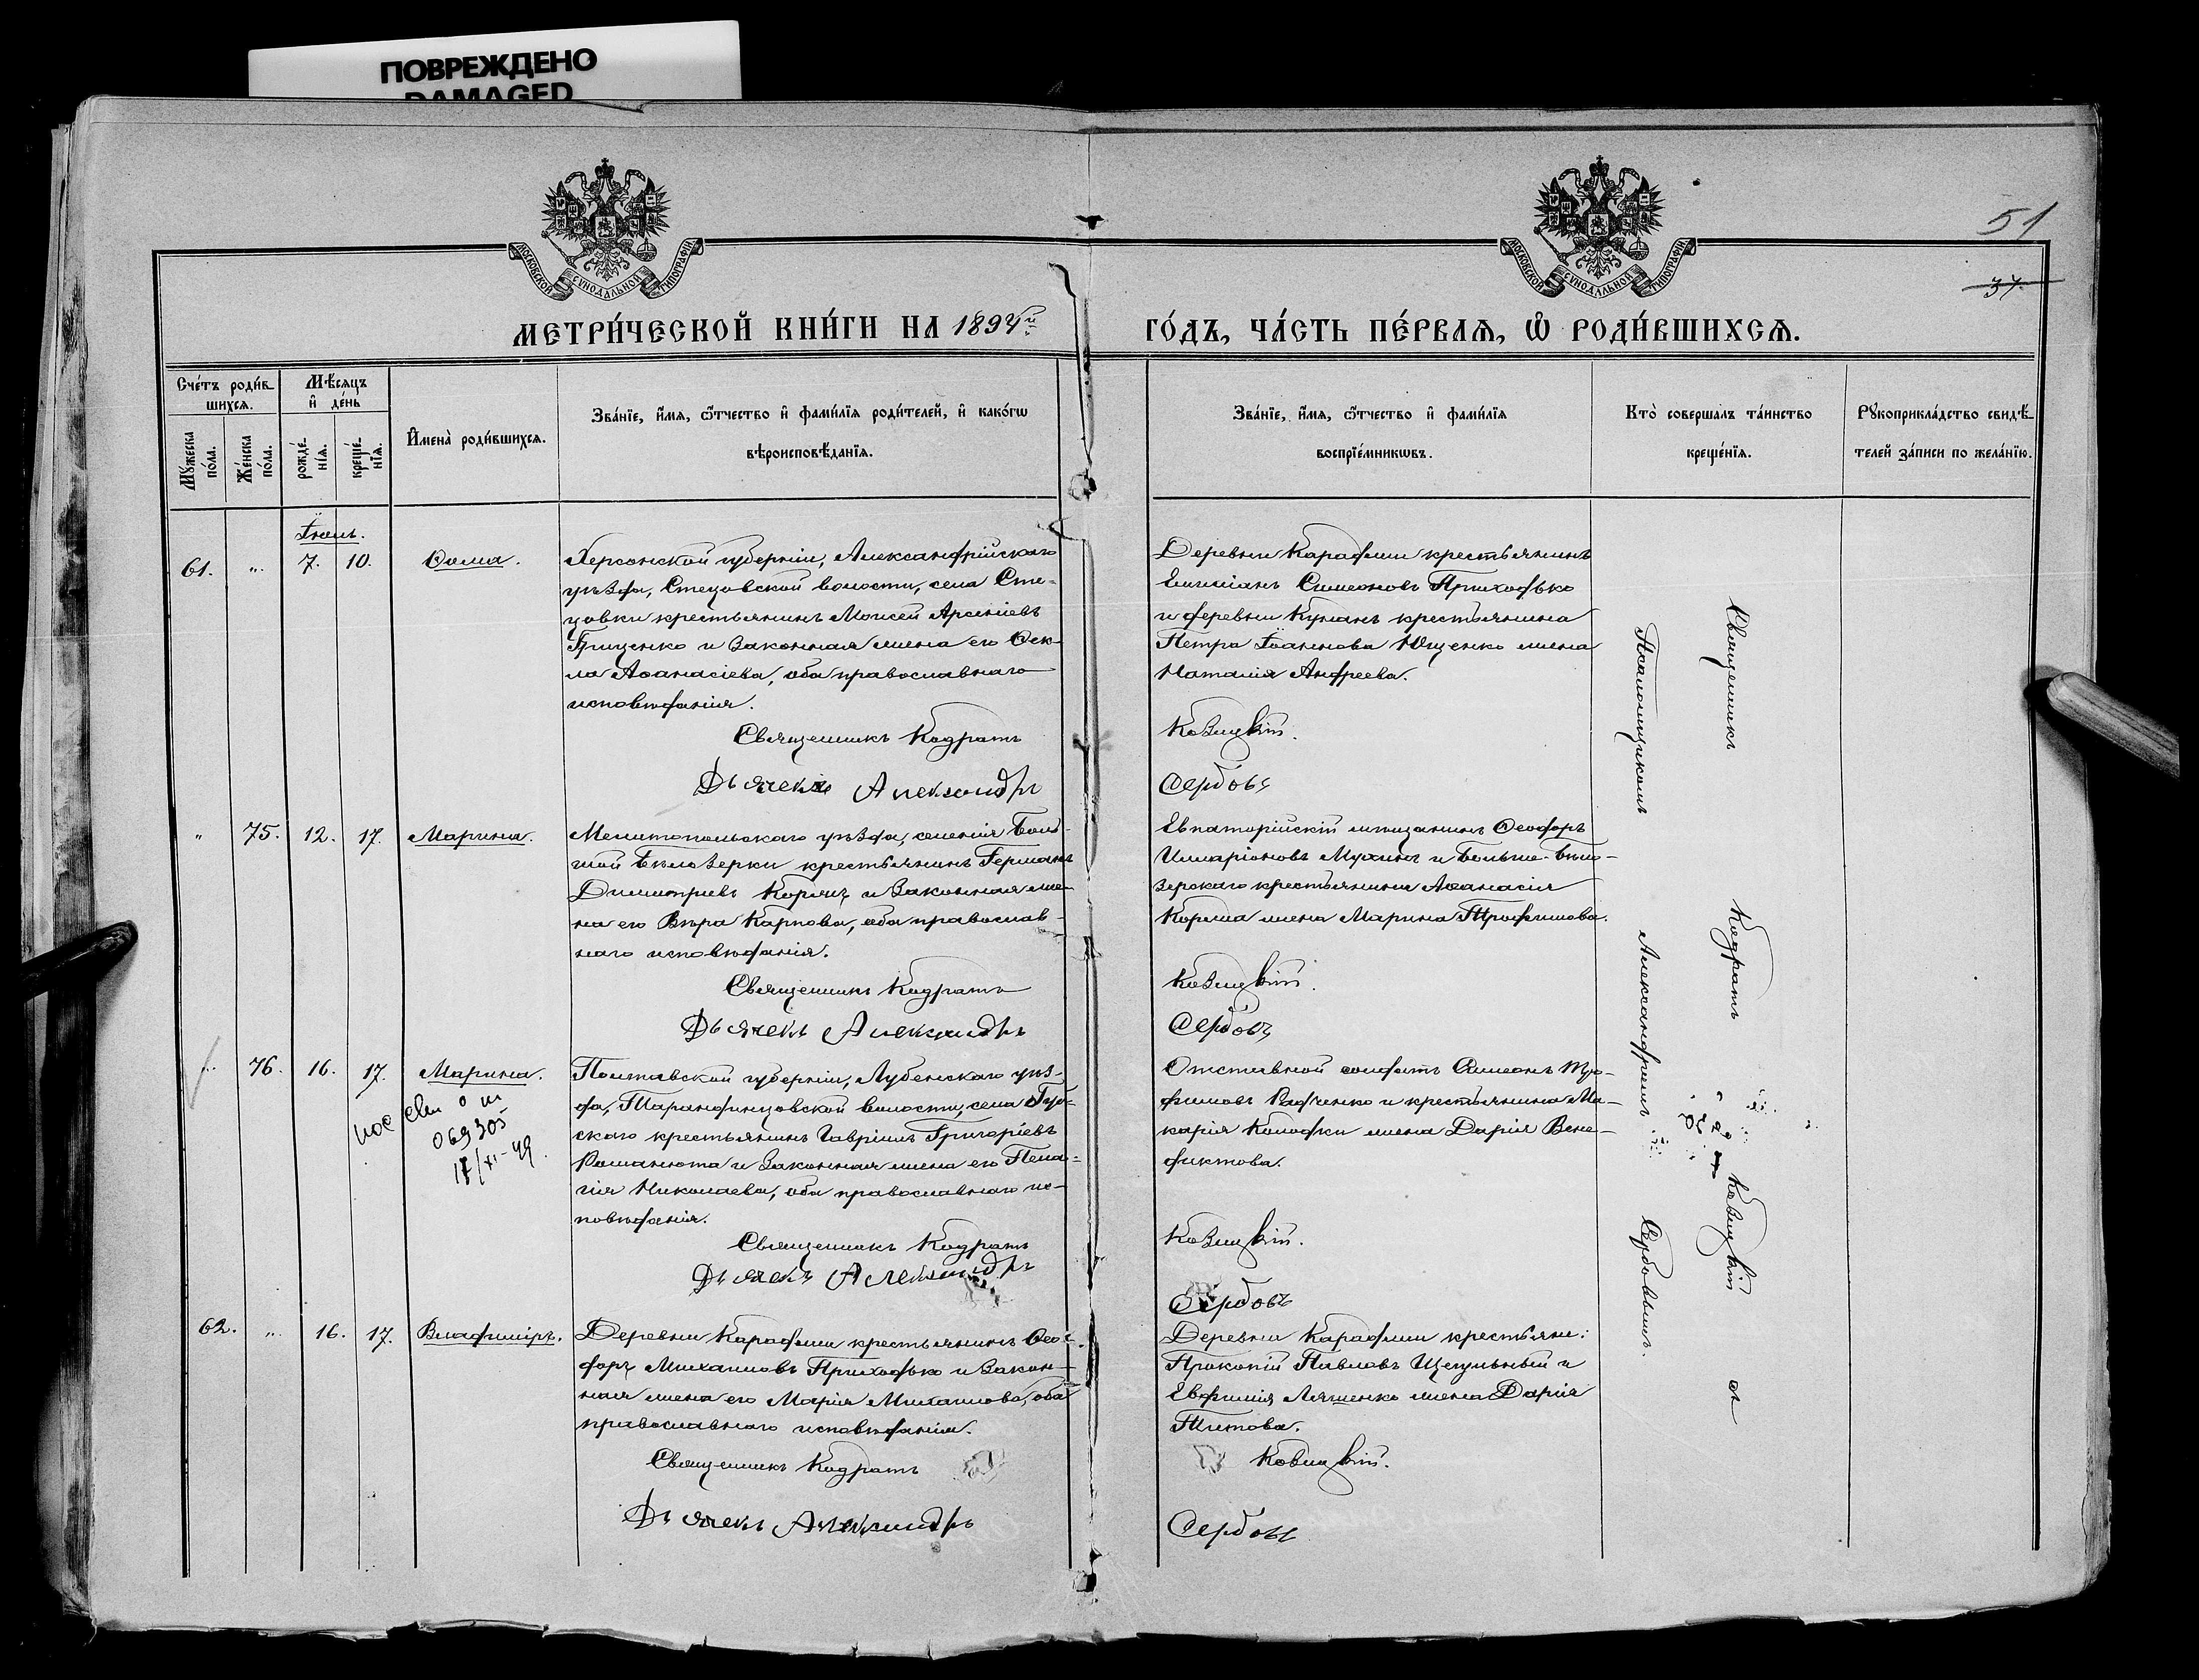 ПОВРЕЖДЕНО
DAMAGED
МОСКОВСКОЙ СѴНОДАЛЬНОЙ ТИПОГРАФІИ
МОСКОВСКОЙ СѴНОДАЛЬНОЙ ТИПОГРАФІИ
51
37.
МЕТРИ́ЧЕСКОЙ КНИ́ГИ НА 1894й
ГО́ДЪ, ЧА́СТЬ ПЕ́РВАѦ, Ѡ҆ РОДИ́ВШИХСѦ.
Сче́тъ роди́в-
шихсѧ.
Мꙋ́жеска по́ла.
Же́нска по́ла.
Мѣ́сѧцъ
и҆ де́нь
рожде́-
нїѧ.
креще́-
нїѧ.
И҆мена̀ роди́вшихсѧ.
Зва́нїе, и҆́мѧ, ѻ҆́тчество и҆ фами́лїѧ роди́телей, и҆ како́гѡ
вѣроисповѣ́данїѧ.
Зва́нїе, и҆́мѧ, ѻ҆́тчество и҆ фами́лїѧ
воспрїе́мникѡвъ.
Кто̀ соверша́лъ та́инство
креще́нїѧ.
Рꙋкоприкла́дство свидѣ́-
телей за́писи по жела́нїю.
Іюль.
61. „ 7. 10. Ѳома.
Херсонской губерніи, Александрійскаго
уѣзда, Стецовской волости, села Сте-
цовки крестьянинъ Моисей Арсеніевъ
Гриценко и законная жена его Ѳек-
ла Аѳанасіева, оба православнаго
исповѣданія.
Священникъ Кодратъ
Дьячекъ Александръ
Деревни Караджи крестьянинъ
Емиліанъ Симеоновъ Приходько
и деревни Кунанъ крестьянина
Петра Іоаннова Ющенко жена
Наталія Андреева.
Козицкій.
Сербовъ
„ 75. 12. 17. Марина.
Мелитопольскаго уѣзда, селенія Боль-
шой Бѣлозерки крестьянинъ Германъ
Димитріевъ Коржъ и законная же-
на его Вѣра Карпова, оба православ-
наго исповѣданія.
Священникъ Кодратъ
Дьячекъ Александръ
Евпаторійскій мѣщанинъ Ѳеодоръ
Илларіоновъ Мухинъ и Больше-Бѣло-
зерскаго крестьянина Аѳанасія
Коржа жена Марина Трофимова.
Козицкій.
Сербовъ
„ 76. 16. 17. Марина.
пос свид о
069305
17/XI-49.
Полтавской губерніи, Лубенскаго уѣз-
да, Тарандинцовской волости, села
скаго крестьянинъ Гавріилъ Григоріевъ
Романюта и законная жена его Пела-
гія Николаева, оба православнаго ис-
повѣданія.
Священникъ Кодратъ
Дьячекъ Александръ
Отставной солдатъ Симеонъ Тро-
фимовъ Радченко и крестьянина Ма-
карія Колодки жена Дарія Вене-
диктова.
Козицкій.
Сербовъ
62. „ 16. 17. Владиміръ.
Деревни Караджи крестьянинъ Ѳео-
доръ Михаиловъ Приходько и закон-
ная жена его Марія Михаилова, оба
православнаго исповѣданія.
Священникъ Кодратъ
Дьячекъ Александръ
Деревни Караджи крестьяне:
Прокопій Павловъ Щегульный и
Евфимія Ляшенко жена Дарія
Титова.
Козицкій.
Сербовъ
Священникъ Кодратъ Козицкій съ
Псаломщикомъ Александромъ Сербовымъ.